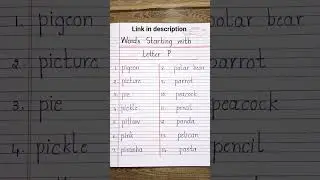 Link in description
Words Starting with
Letter P
1. pigeon
2. picture
3. pie
4. pickle
5. pillow
6. pink
7. piranha
8. polar bear
9. parrot
10. peacock
11. pencil
12. panda
13. pelican
14. pasta
1. pigeon
2. picture
3. pie
4. pickle
polar bear
parrot
peacock
pencil